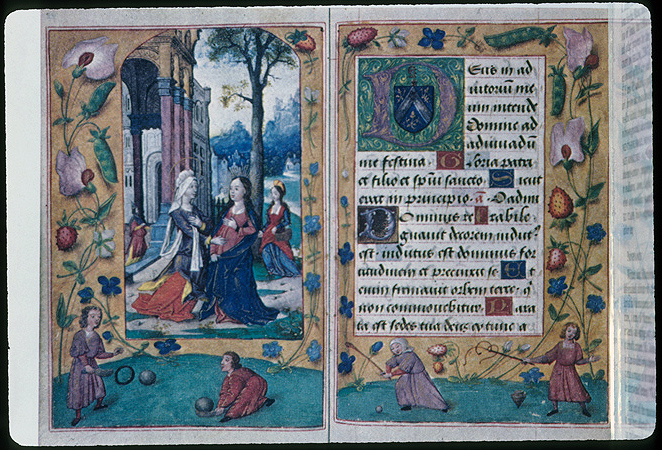 DEus in ad
iutoriū me
um intende
Domine ad
adiuuādū
me festina. Gloria patri
et filio et spūi sancto. Sicut
erat in principio. a
Dominus
decorem indut
est. indutus est dominus for
titudinem et precinxit se. Et
enim firmauit orbem terre. q
non commouebitur. Para
ta est sedes tua deus ex tunc a